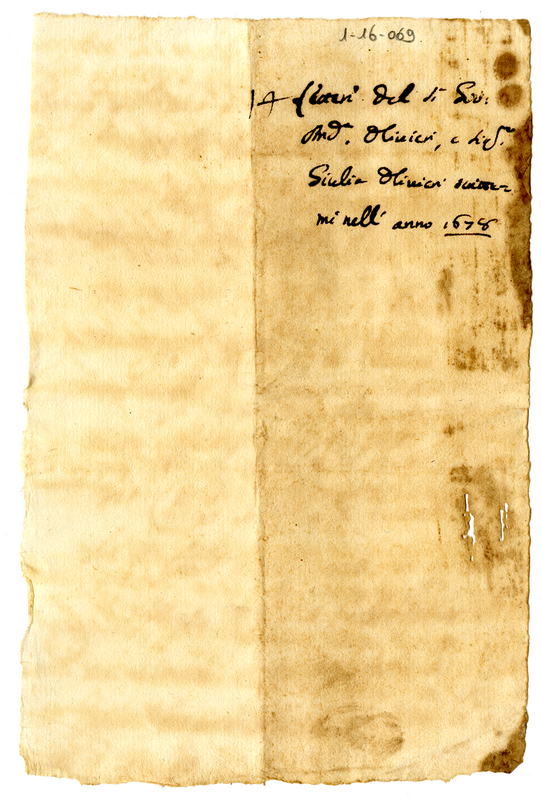 1-16-069
Lettere del Sr Gio:
And.a Olivieri, e Sigr.a
Giulia Olivieri scritte=
mi nell' anno 1678